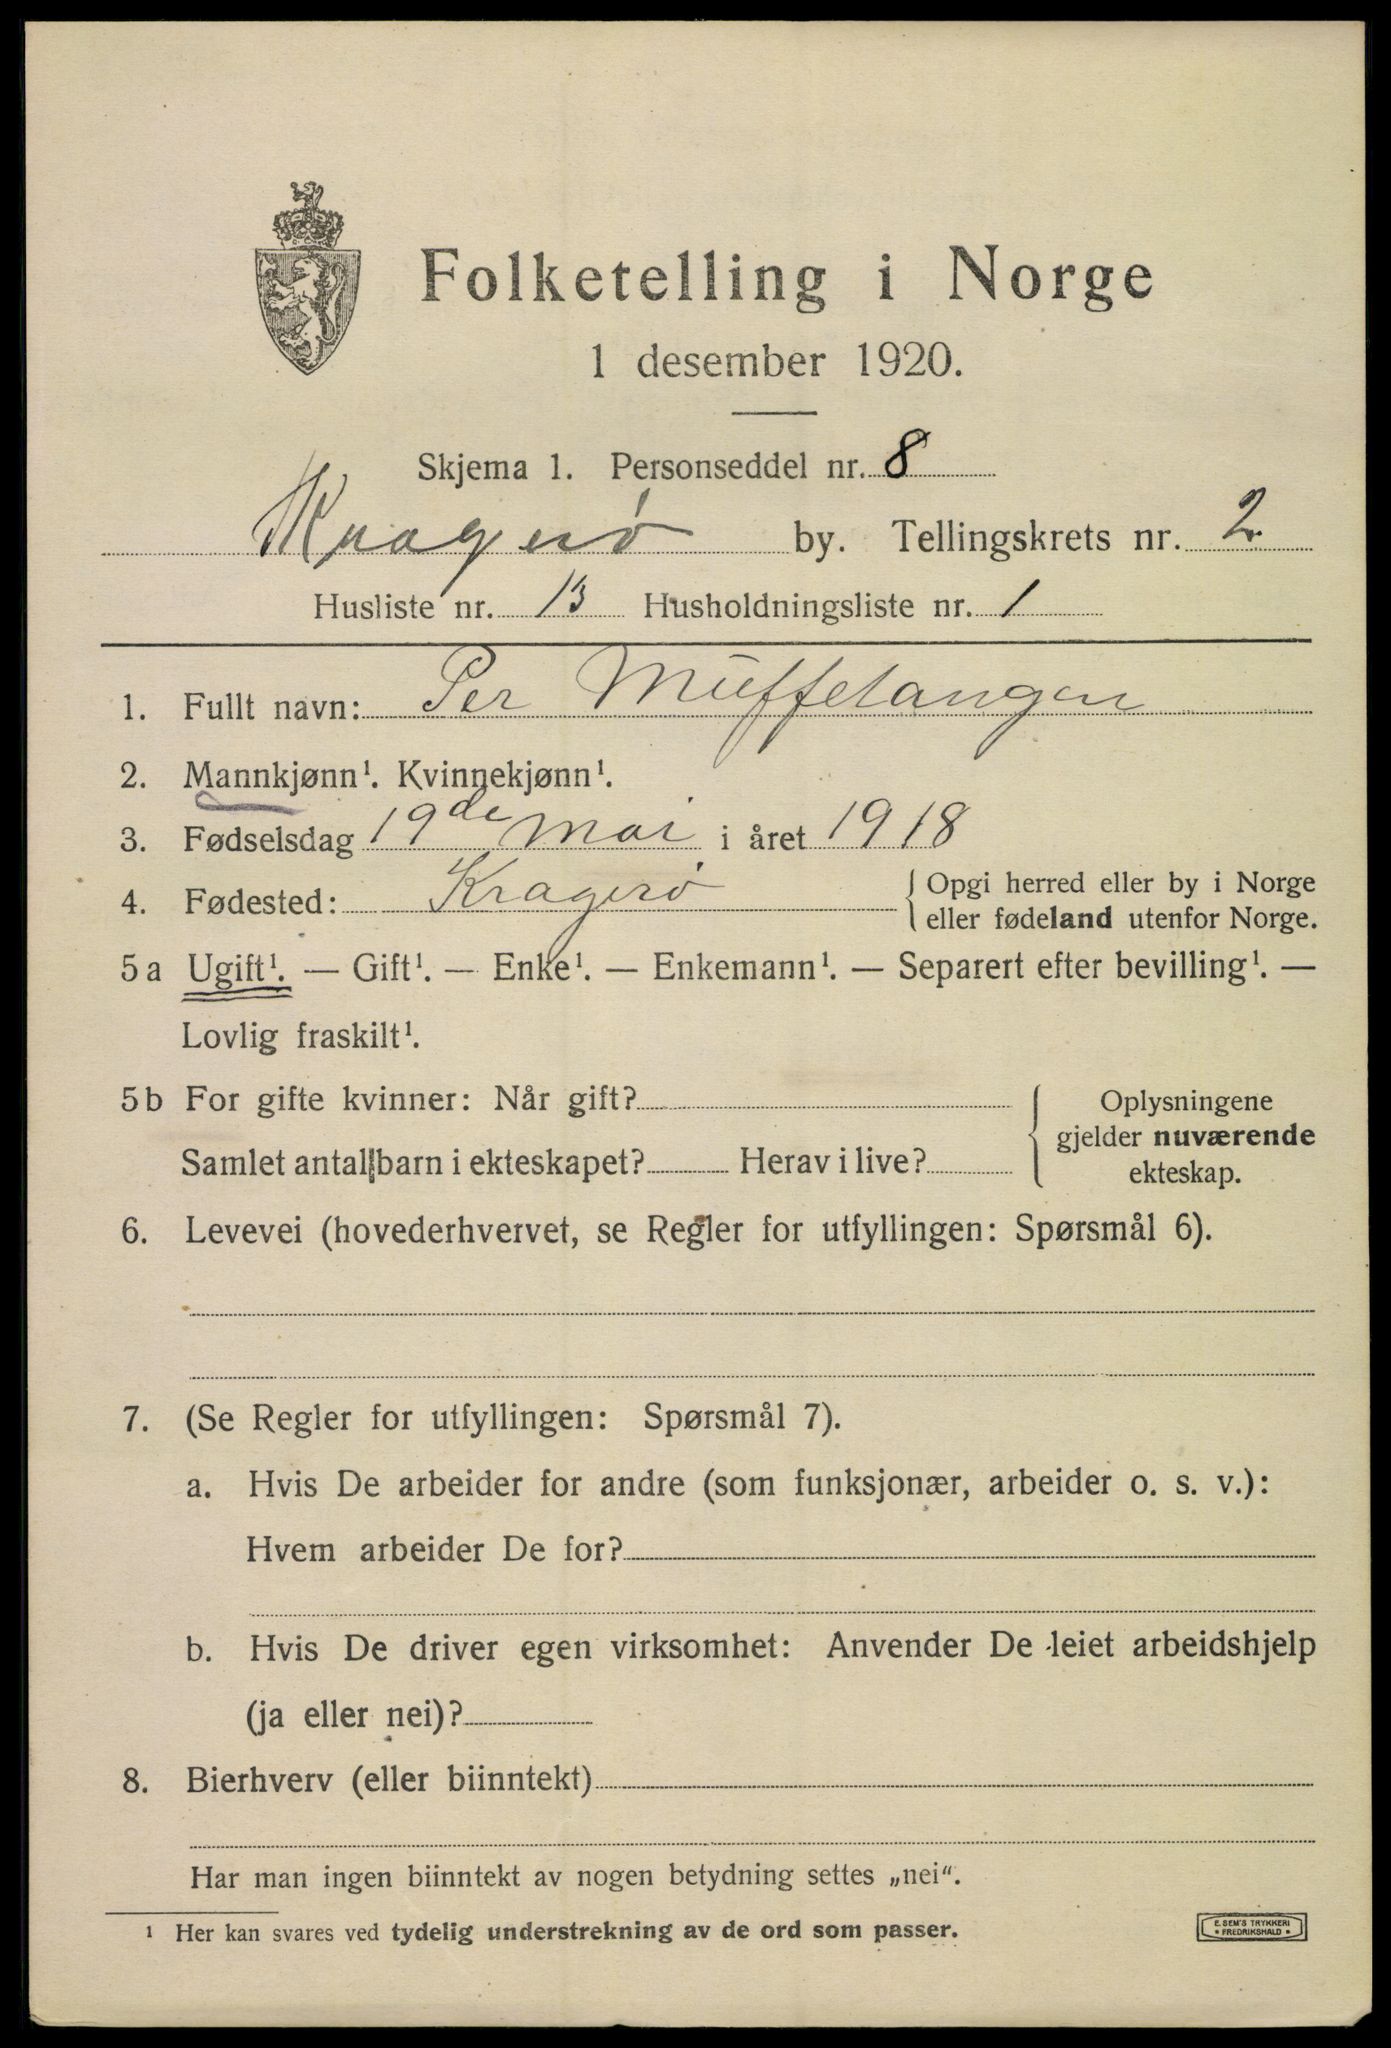 Folketelling i Norge
1 desember 1920.
Skjema 1. Personseddel nr. 8
Kragerø by. Tellingskrets nr. 2
Husliste nr. 13 Husholdningsliste nr. 1
1. Fullt navn: Per Müffelangen
2. Mannkjønn¹. Kvinnekjønn¹.
3. Fødselsdag 19de mai i året 1918
4. Fødested: Kragerø { Opgi herred eller by i Norge
eller fødeland utenfor Norge.
5 a Ugift¹. — Gift¹. — Enke¹. — Enkemann¹. — Separert efter bevilling¹. —
Lovlig fraskilt¹.
5 b For gifte kvinner: Når gift?
Samlet antal barn i ekteskapet? Herav i live?
{ Oplysningene
gjelder nuværende
ekteskap.
6. Levevei (hovederhvervet, se Regler for utfyllingen: Spørsmål 6).
7. (Se Regler for utfyllingen: Spørsmål 7).
a. Hvis De arbeider for andre (som funksjonær, arbeider o. s. v.):
Hvem arbeider De for?
b. Hvis De driver egen virksomhet: Anvender De leiet arbeidshjelp
(ja eller nei)?
8. Bierhverv (eller biinntekt)
Har man ingen biinntekt av nogen betydning settes „nei“.
¹ Her kan svares ved tydelig understrekning av de ord som passer.
E. SEM'S TRYKKERI
• FREDRIKSHALD •